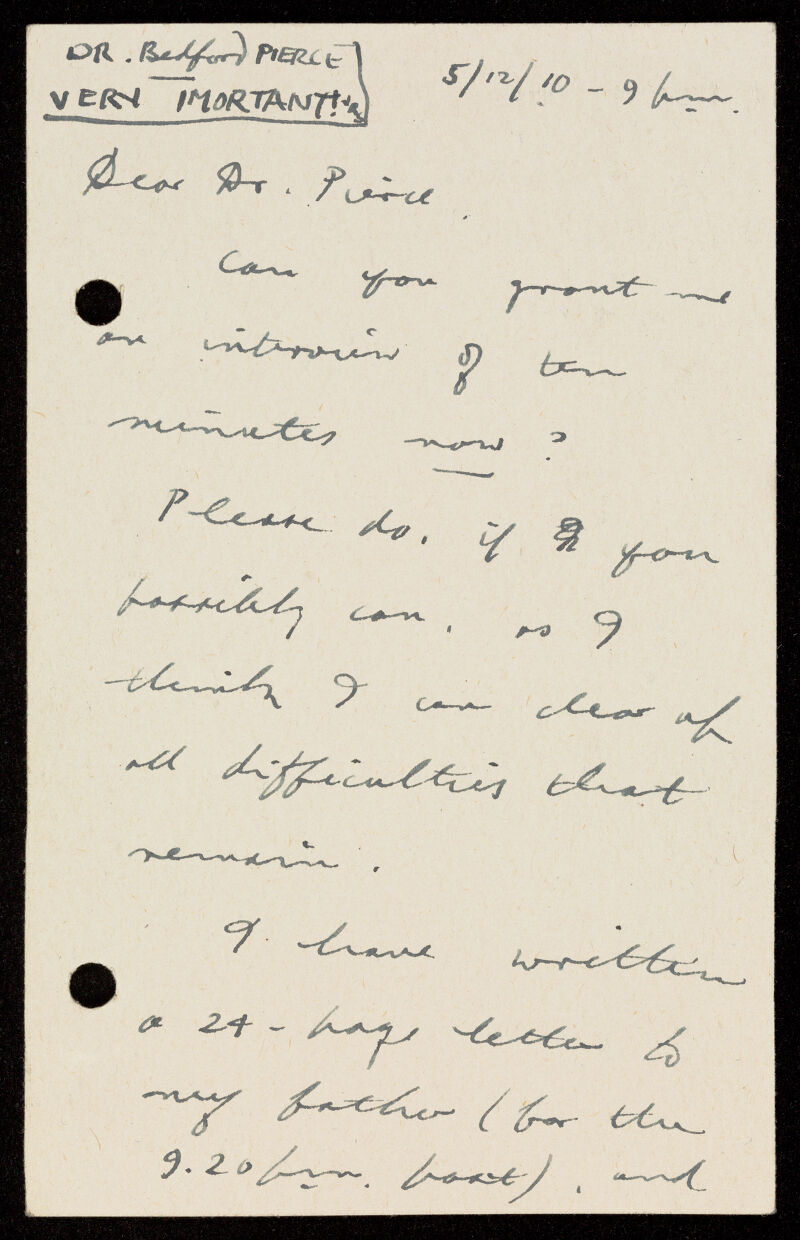 DR. Bedford PIERCE
VERY IMORTANT!
5/12/10 - 9 pm.
Dear Dr. Pierce.
Can you grant me
an interview of ten
minutes now?
Please do, if you
possibly can, as I
think I can clear up
all difficulties that
remain.
I have written
a 24-page letter to
my father (for the
9.20 pm. post), and